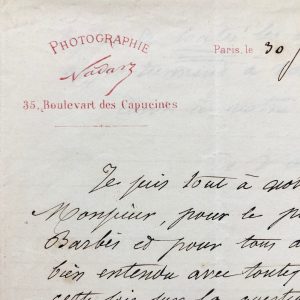 PHOTOGRAPHIE
Nadar
35, Boulevart des Capucines
Paris, le 30
Je suis tout à
Monsieur, pour le
Barbès et pour tous
bien entendu avec
cette fois sur la